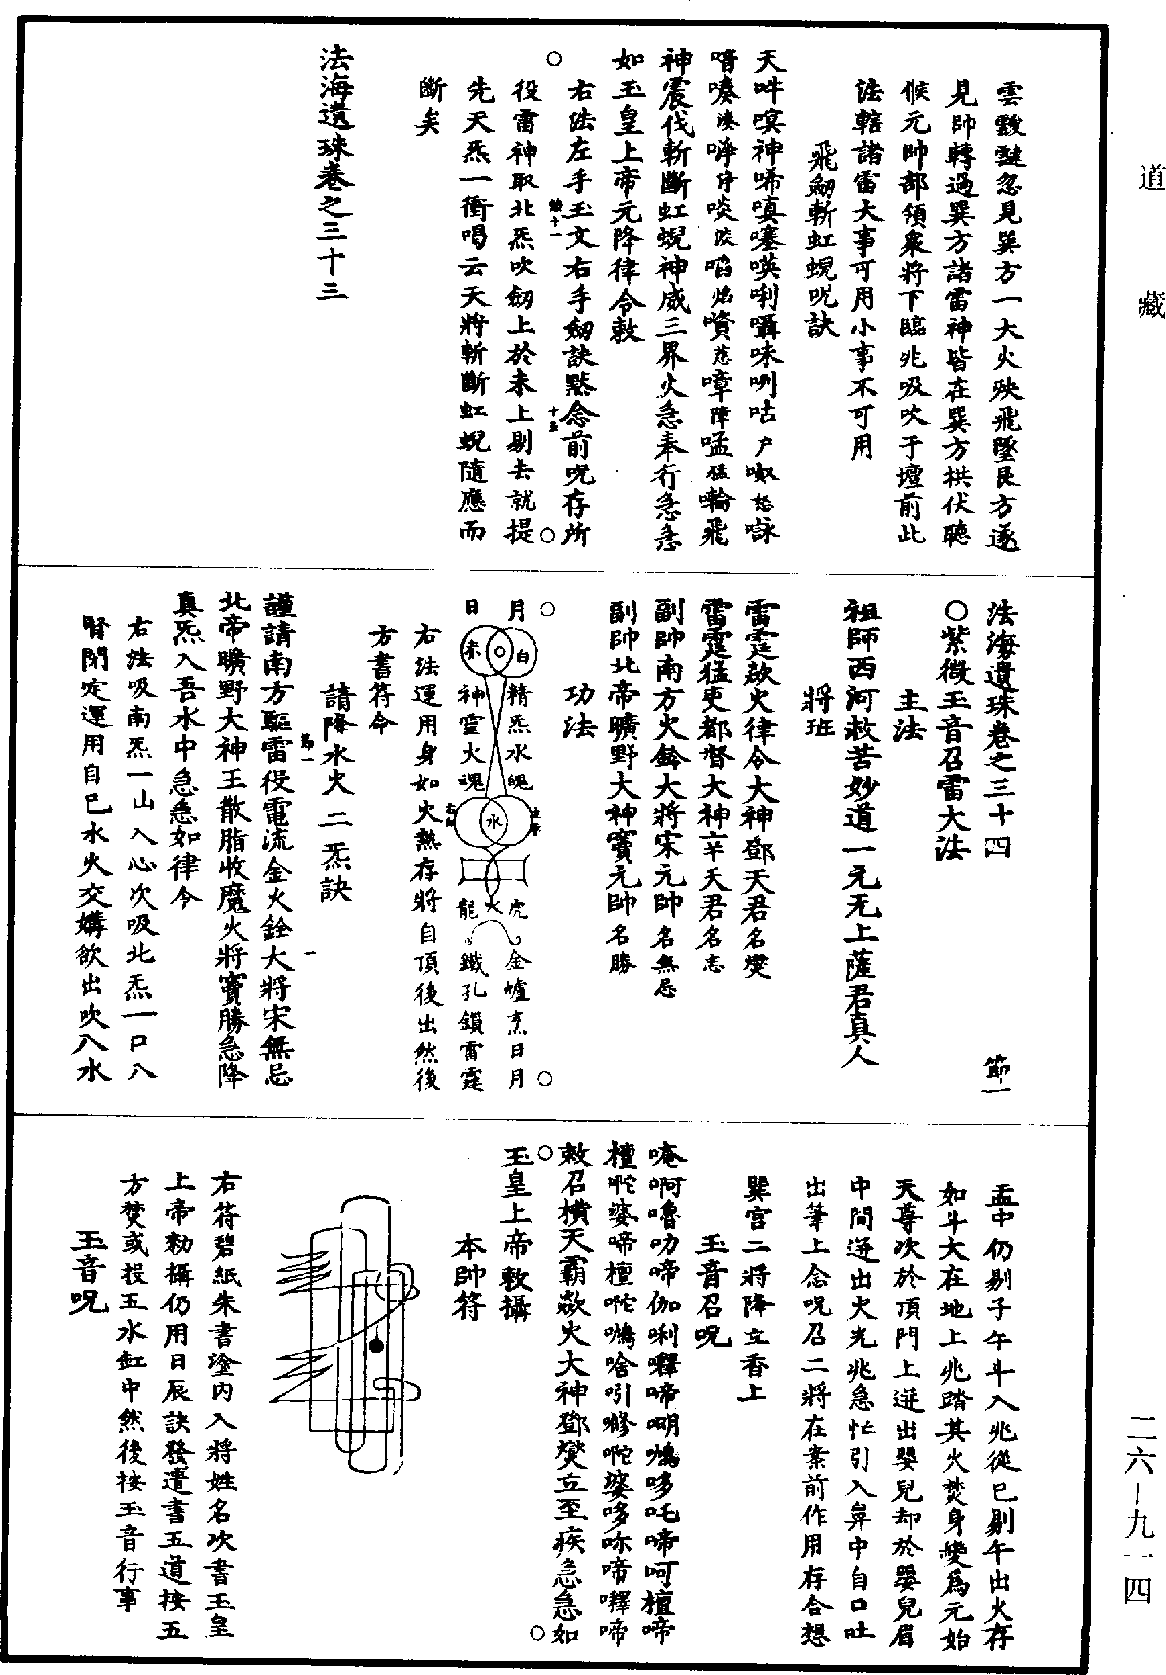 道藏
雲黢靆忽見巽方一大火殃飛墜艮方逐
見帥轉過巽方諸雷神皆在巽方拱伏聽
候元帥部領衆將下臨兆吸吹于壇前此
法轄諸雷大事可用小事不可用
飛劒斬虹蜺呪訣
天吽嗼神唏嗔嚏喫唎囁味咧咕戶呶怒詠
神震伐斬斷虹蜺神威三界火急奉行急急
如玉皇上帝元降律令敕
右法左手玉文右手劒訣黙念前呪存所
役雷神取北炁吹劒上於未上剔去就提
先天炁一衝喝云天將斬斷虹蜺隨應而
斷矣
法海遺珠卷之三十三
法海遺珠卷之三十四 節一
○紫微玉音召雷大法
主法
祖師西河救苦妙道一元无上薩君真人
將班
雷霆歘火律令大神鄧天君名燮
雷霆猛吏都督大神辛天君名志
副帥南方火鈴大將宋元帥名無忌
副帥北帝曠野大神竇元帥名勝
功法
月 白 精炁水魄 虎 金爐烹日月
日 赤 神靈火魂 龍 鐵孔鎖雷霆
水
火
右法運用身如火熱存將自頂後出然後
方書符命
請降水火二炁訣
謹請南方驅雷役電流金火鈴大將宋無忌
北帝曠野大神王散脂收魔火將竇勝急降
真炁入吾水中急急如律令
右法吸南炁一山入心次吸北炁一口入
腎閉定運用自己水火交媾欲出吹入水
盂中仍剔子午斗入兆從巳剔午出火存
如斗大在地上兆踏其火焚身變爲元始
天尊次於頂門上迸出嬰兒却於嬰兒眉
中間迸出火光兆急忙引入鼻中自口吐
出筆上念呪召二將在案前作用存合想
巽宮二將降立香上
玉音召呪
唵啊嚕叻啼伽唎㘁啼啊嗚哆吒啼呵檀啼
檀㖿婆啼檀㖿嗚唅引嘇㖿婆哆㖇啼㘁啼
敕召橫天霸歘火大神鄧燮立至疾急急如
玉皇上帝敕攝
本帥符
右符碧紙朱書塗內入將姓名次書玉皇
上帝勑攝仍用日辰訣發遣書五道按五
方焚或投五水缸中然後按玉音行事
玉音呪
二六—九一四